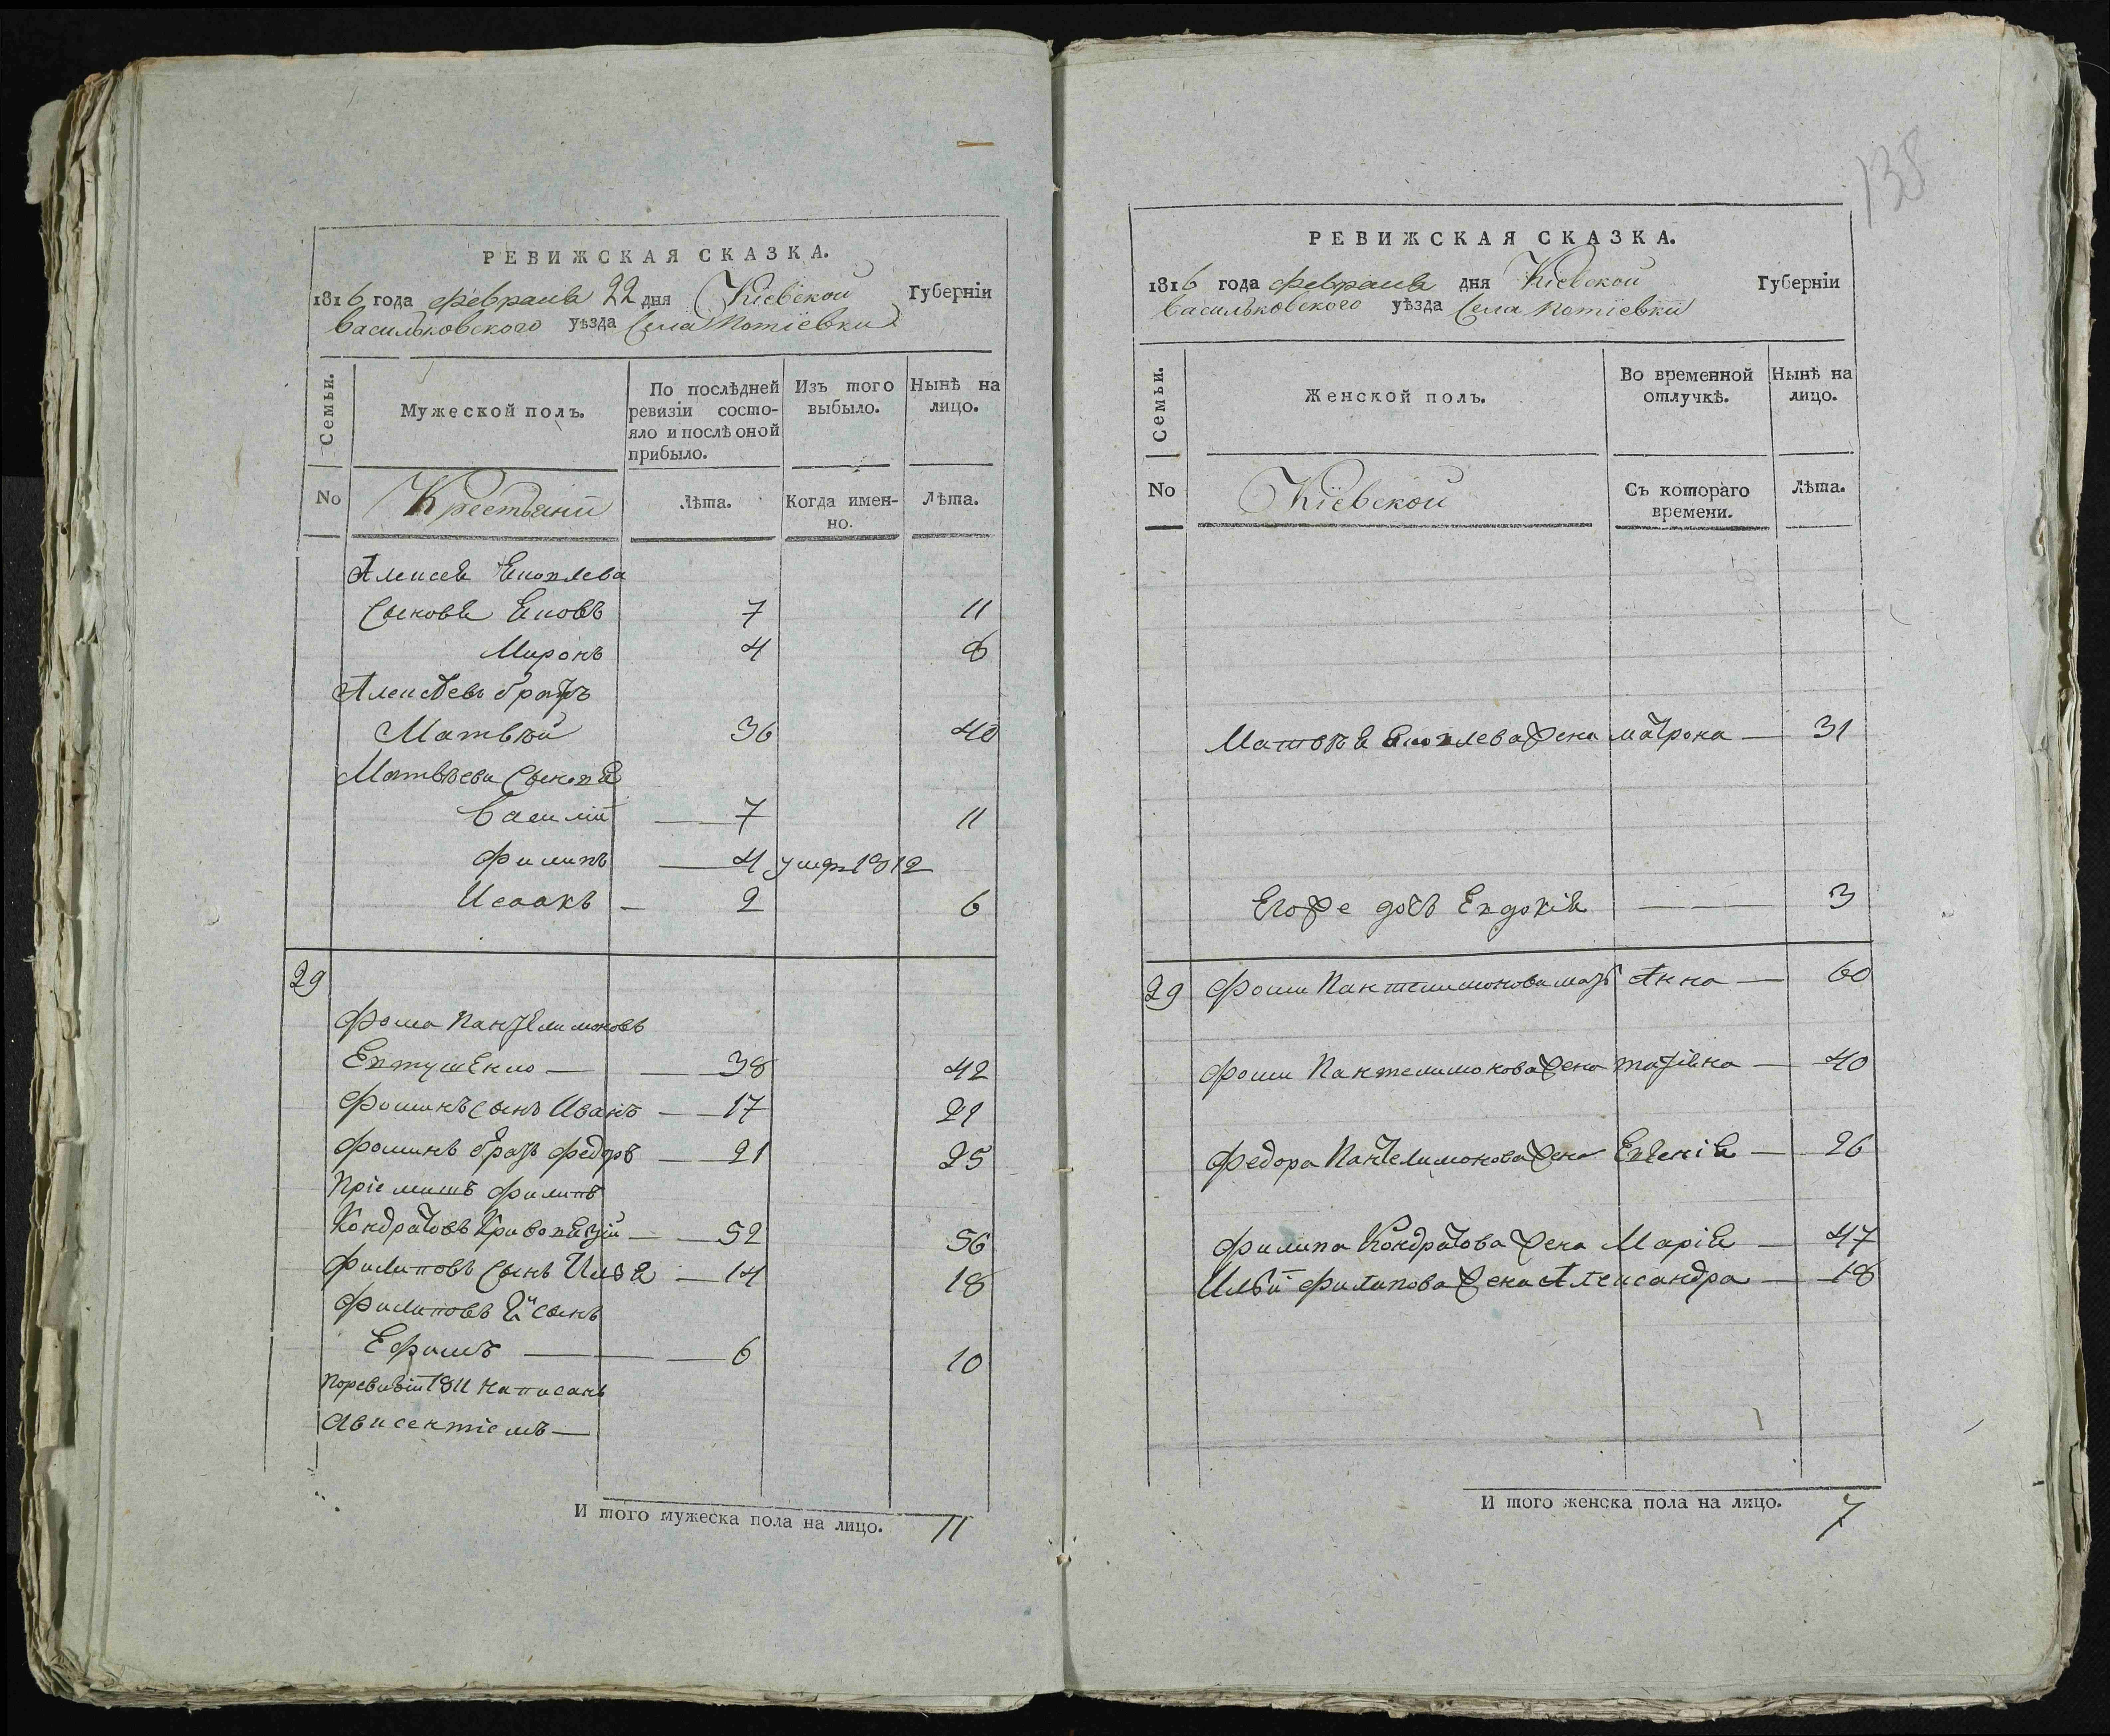 РЕВИЖСКАЯ СКАЗКА.
1816 года февраля 22 дня Кіевской Губерніи
Васильковского уѣзда Села Потіевки
Семьи.
Мужеской полъ.
По послѣдней ревизіи состо-
яло и послѣ оной прибыло.
Изъ того выбыло.
Нынѣ на лицо.
No
Крестьяни
Лѣта.
Когда имен-
но.
Лѣта.
Алексея Яковлева
Сыновя Яковъ 7 11
Миронъ 4 8
Алексѣевъ братъ
Матвѣй 36 40
Матвѣева Сыновя
Василій — 7 11
Филипъ — 4 умръ 1812
Исаакъ — 2 6
29
Фома Пантелимоновъ
Евтушенко — 38 42
Фоминъ Сынъ Иванъ — 17 21
Фоминъ братъ Федоръ — 21 25
Пріемышъ Филипъ
Кондратовъ — 52 56
Филиповъ Сынъ Илья — 14 18
Филиповъ 2й сынъ
Ефимъ — 6 10
Поревизіи 1811 написанъ
Авксентіемъ —
И того мужеска пола на лицо. 11
138
РЕВИЖСКАЯ СКАЗКА.
1816 года февраля дня Кіевской Губерніи
Васильковского уѣзда Села Потіевки
Семьи.
Женской полъ.
Во временной отлучкѣ.
Нынѣ на лицо.
No
Кіевской
Съ котораго времени.
Лѣта.
Матвѣя Яковлева жена матрона — 31
Егоже дочь Евдокія — 3
29 Фоми Пантелимонова мать Анна — 60
Фоми Пантелимонова жена татіяна — 40
Федора Пантелимонова жена Евгенія — 26
Филипа Кондратова жена Марія — 47
Ильи Филипова жена Александра — 18
И того женска пола на лицо. 7